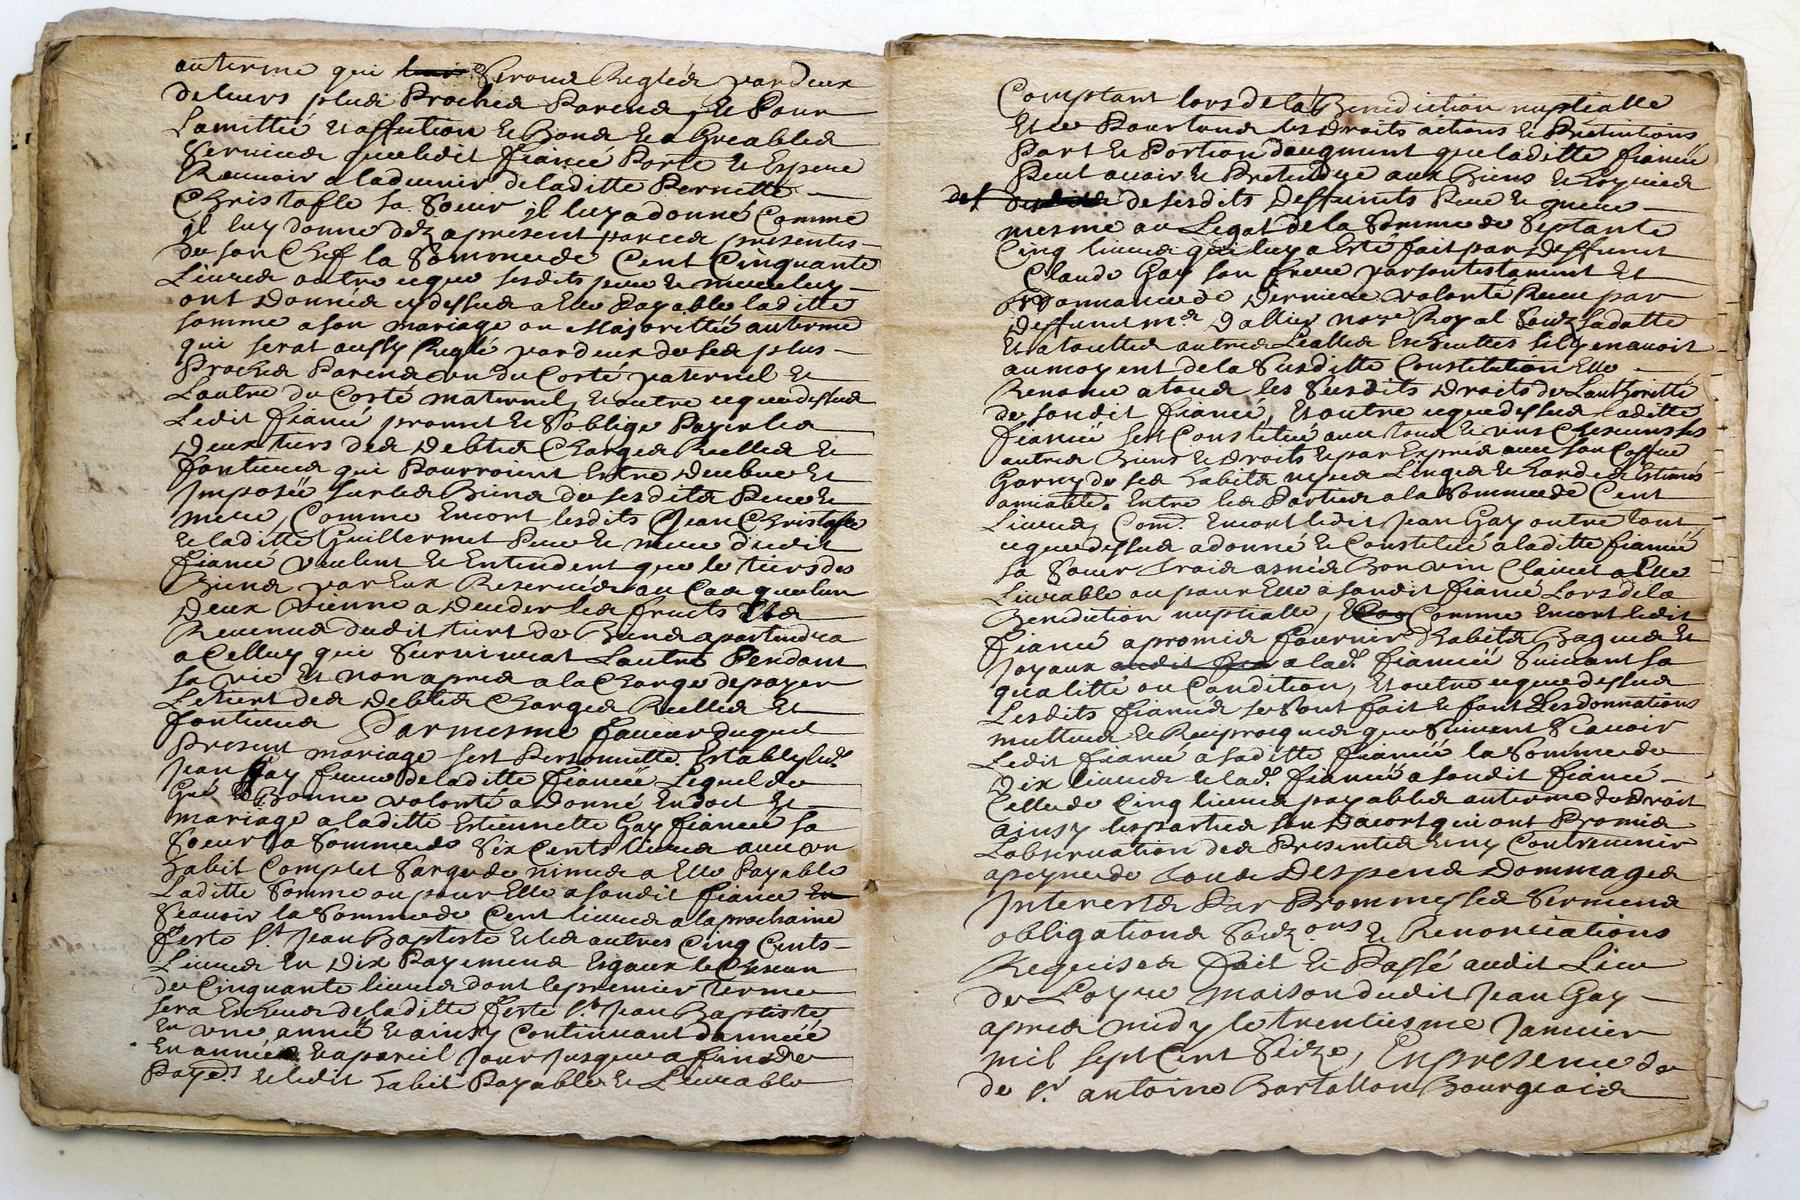 au terme qui Seront Reglés par deux
de leurs plus Proches Parens, Et Pour
Lamittié Et affection Et Bons Et agreables
Services que ledit fiancé Porte Et Espere
Recevoir a ladvenir de laditte Pernette
Christofle sa Soeur il luy a donné Comme
il luy donne dez apresent par ces presentes
de son Chef la Somme de Cent Cinquante
Livres outre ceque sesdits pere Et mere luy
ont Donnés cydessus a Elle Payable laditte
somme a son mariage ou Majorittté au terme
qui serat aussy Reglé par deux de ses plus
Proches Parens un du Costé paternel Et
Lautre du Costé maternel, Et outre ceque dessus
Ledit fiancé promet Et Soblige Payer les
Deux tiers des Debtes Charges Reelles Et
foncieres qui Pourroient Estre deubues Et
Imposés sur les Biens de sesdits Pere Et
mere, Comme Encort lesdits Jean Christofle
Et laditte Guillermet Pere Et mere dudit
fiancé veulent Et Entendent que le tiers des
Biens par Eux Reservés au Cas que lun
Deux vienne a Deceder les fruits Et
Revenus dudit tiert de Biens apartiendra
a Celluy qui Survivrat Lautre Pendant
sa vie Et non apres a la Charge de payer
Le tiert des Debtes Charges Reelles Et
foncieres Par mesme faveur duquel
Present mariage sest Personnellt Estably led.
Jean Gay frere de laditte fiancée Lequel de
Gré Et Bonne volonté a Donné En dot Et
mariage a laditte Estiennette Gay fiancée sa
Soeur la Somme de Six Cents livres avec un
habit Complet Sarge de nimes a Elle Payable
Laditte Somme ou pour Elle a sondit fiancé
Scavoir la Somme de Cent livres a la prochaine
feste St Jean Baptiste Et les autres Cinq Cents
Livres En Dix Payemens Esgaux le Chescun
de Cinquante livres dont le premier terme
sera Escheus de laditte feste St Jean Baptiste
En une année Et ainsy Continuant dannée
En année Et a pareil Jour Jusques a fin de
Payet Et ledit habit Payable Et Livrable
Comptant lors de la Benediction nuptialle
Et ce Pour tous les Droits actions Et Pretentions
Part Et Portion daugment que laditte fiancée
Peut avoir Et Pretendre aux Biens Et hoyries
de sesdits Deffunts Pere Et mere
mesme au Legat de la Somme de Septante
Cinq livres qui luy a Esté fait par Deffunt
Claude Gay son frere par son testament Et
ordonnance de Derniere volonté Receu par
Deffunt Mr Dallier nore Royal Soubz sa datte
Et a touttes autres Escheuttes sil y en avoit
au moyent de la Susditte Constitution Elle
Renonce a tous les Susdits Droits de Lauthoritté
de sondit fiancé, Et outre ceque dessus laditte
fiancée sest Constitué avec tous Et uns Chescuns ses
autres Biens Et Droits Et par Exprés avec son Coffre
Garny de ses habits Linges Et hardes Estimés
amiablet Entre les Parties a la Somme de Cent
Livres, Com. Encort ledit Jean Gay outre tout
ceque dessus a donné Et Constitué a laditte fiancée
sa Soeur trois asnées Bon vin Clairet a Elle
Livrable ou pour Elle a sondit fiancé Lors de la
Benediction nuptialle, Comme Encort ledit
fiancé a promis fournir d'habits Bagues Et
Joyaux a lad. fiancée Suivant sa
qualitté ou Condition, Et outre ceque dessus
Lesdits fiancés se Sont fait Et font Les donnations
mutues Et Reciproques que Suivent Scavoir
Ledit fiancé a saditte fiancée la Somme de
Dix livres Et lad. fiancée a sondit fiancé
Celle de Cinq livres payables au terme du Droit
ainsy les parties Sen Dacort qui ont Promis
Lobservation des Presentes Et ny Contrevenir
a peyne de tous Despens Dommages
Interests Par Prommesses Sermens
obligations Soubzons Et Renonciations
Requises Fait Et Passé audit Lieu
de Loyre maison dudit Jean Gay
apres midy le trentiesme Janvier
mil sept Cent Seize, En presence de
de Sr. antoine Bartallon Bourgeois